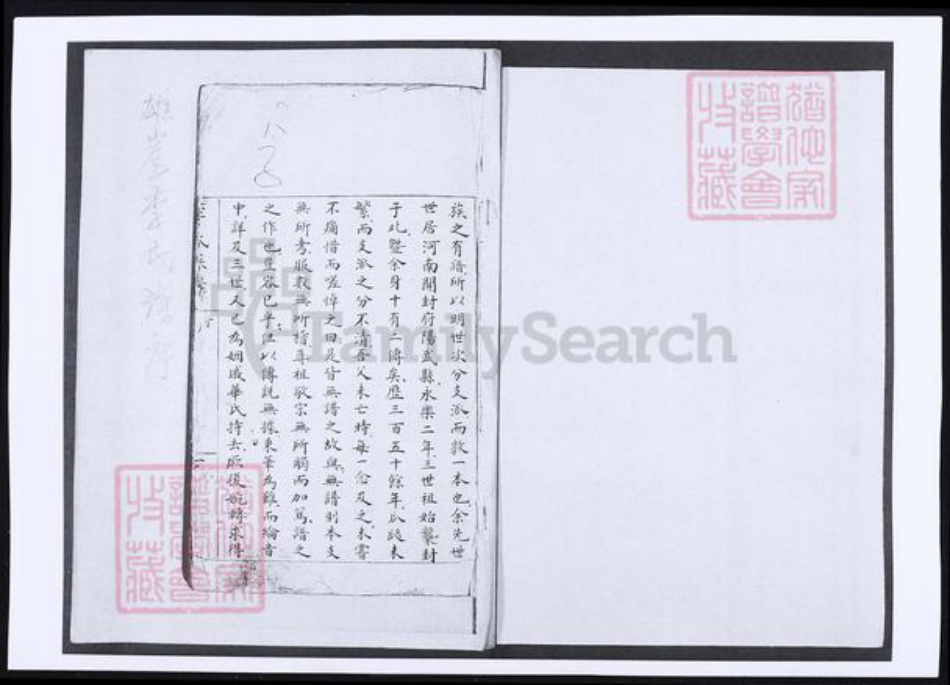 族之有譜所以明世次分支派而敦一本也余先世
世居河南開封府陽武縣永樂二年三世祖始襲封
于此暨余身十有二傳矣歷三百五十餘年瓜瓞未
繁而支派之分不清吾父未亡時每一念及之未嘗
不痛惜而嗟悼之曰是皆無譜之故與無譜則本支
無所考服數無所稽尊祖敬宗無所觸而加篤譜之
之作也豈容已乎但以傳說無據秉筆為難而綸音
中詳及三世又已為姻戚華氏持去厥後婉轉求得
雄崖李氏譜序
FamilySearch
猶他家
譜學會
收藏
猶他家
譜學會
收藏